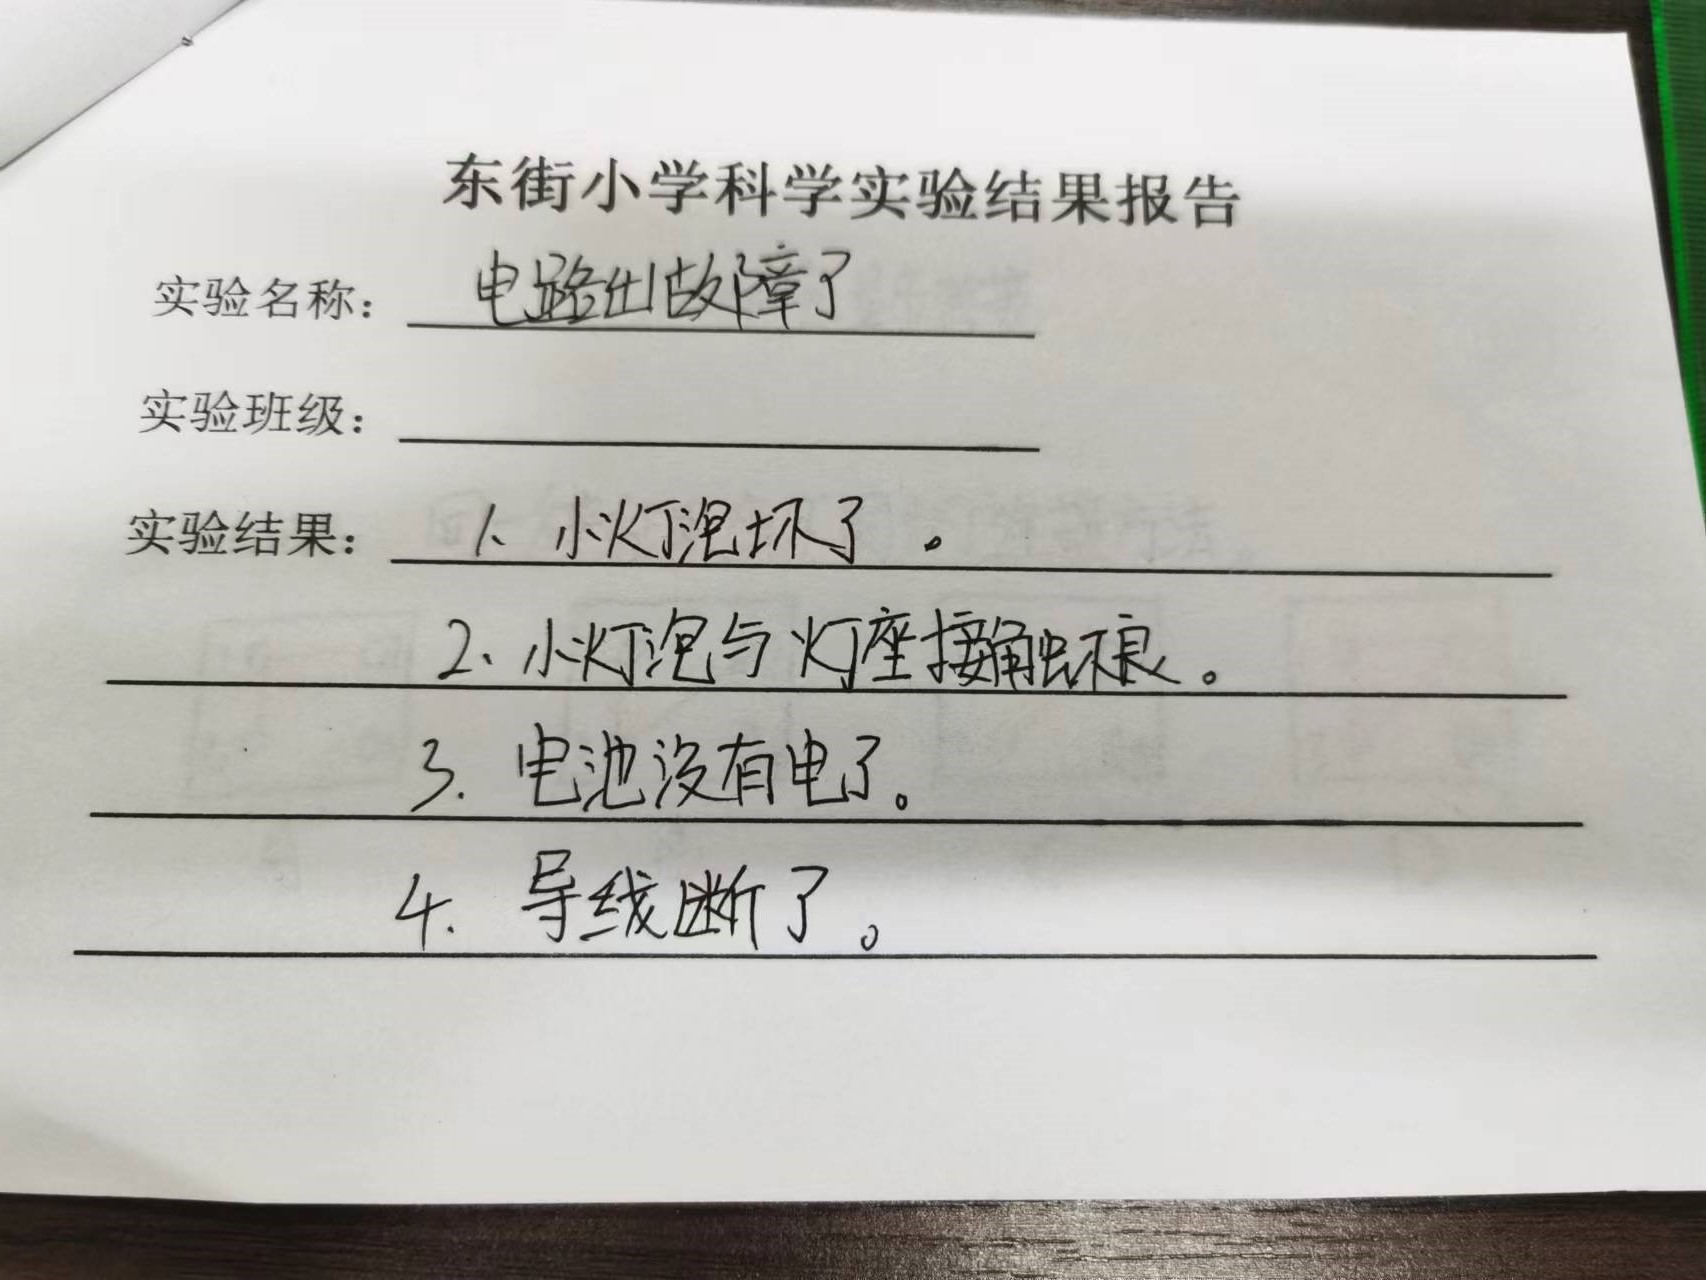 东街小学科学实验结果报告
实验名称： 电路出故障了
实验班级：
实验结果： 1、小灯泡坏了。
2、小灯泡与灯座接触不良。
3. 电池没有电了。
4. 导线断了。